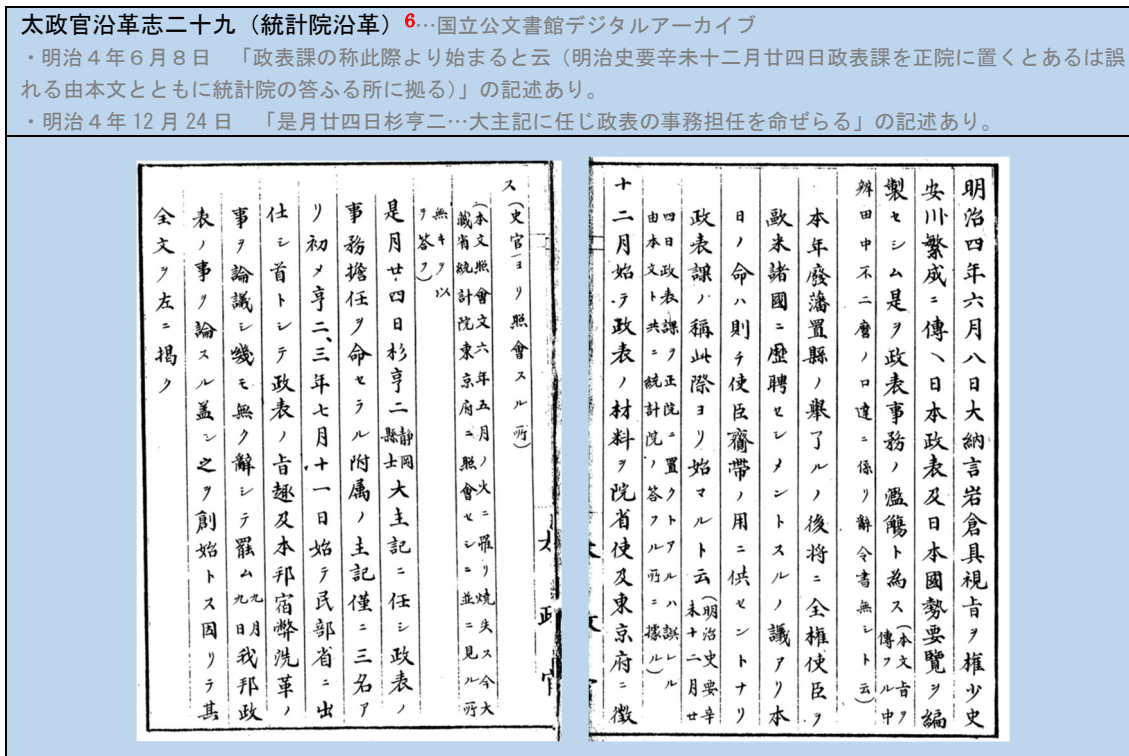 太政官沿革志二十九（統計院沿革）6…国立公文書館デジタルアーカイブ
・明治４年６月８日　「政表課の称此際より始まると云（明治史要辛未十二月廿四日政表課を正院に置くとあるは誤
れる由本文とともに統計院の答ふる所に拠る）」の記述あり。
・明治４年 12 月 24 日　「是月廿四日杉亨二…大主記に任じ政表の事務担任を命ぜらる」の記述あり。
明治四年六月八日大納言岩倉具視旨ヲ權少史
安川繁成ニ傳ヘ日本政表及日本國勢要覧ヲ編
製セシム是ヲ政表事務ノ濫觴ト為ス（本文旨ヲ傳フル中
辨田中不二麿ノ口達ニ係リ辭令書無シト云）
本年廢藩置縣ノ舉了ルノ後將ニ全權使臣ヲ
歐米諸國ニ歴聘セシメントスルノ議アリ本
日ノ命ハ則チ使臣齎帶ノ用ニ供セントナリ
政表課ノ稱此際ヨリ始マルト云（明治史要辛未十二月廿
四日政表課ヲ正院ニ置クトアルハ誤レル由本文ト共ニ統計院ノ答フル所ニ據ル）
十二月始テ政表ノ材料ヲ院省使及東京府ニ徴
ス（史官ヨリ照會スル所）
（本文照會文六年五月ノ火ニ罹リ燒失ス今大
藏省統計院東京府ニ照會セシニ並ニ見ル所
無キヲ以
ヲ答フ）
是月廿四日杉亨二静岡縣士大主記ニ任シ政表ノ
事務擔任ヲ命セラル附属ノ主記僅ニ三名ア
リ初メ亨二、三年七月十一日始テ民部省ニ出
仕シ首トシテ政表ノ旨趣及本邦宿弊洗革ノ
事ヲ論議シ幾モ無ク辭シテ罷ム九月九日我邦政
表ノ事ヲ論スル盖シ之ヲ創始トス因リテ其
全文ヲ左ニ掲ク
太政官